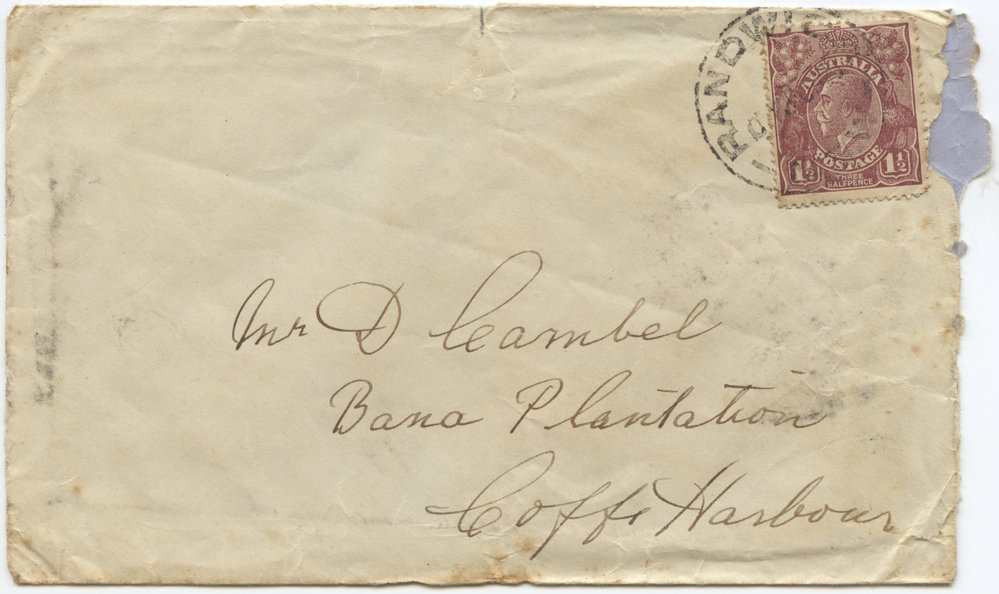 RANDWIC
AUSTRALIA
POSTAGE
1½ THREE HALFPENCE 1½
Mr D Cambel
Bana Plantation
Coffs Harbour